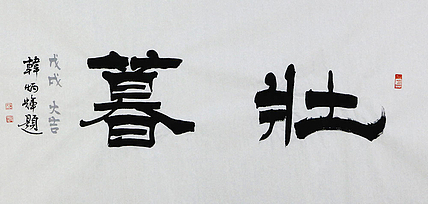 壮暮
戊戌大吉
韓炳輝題